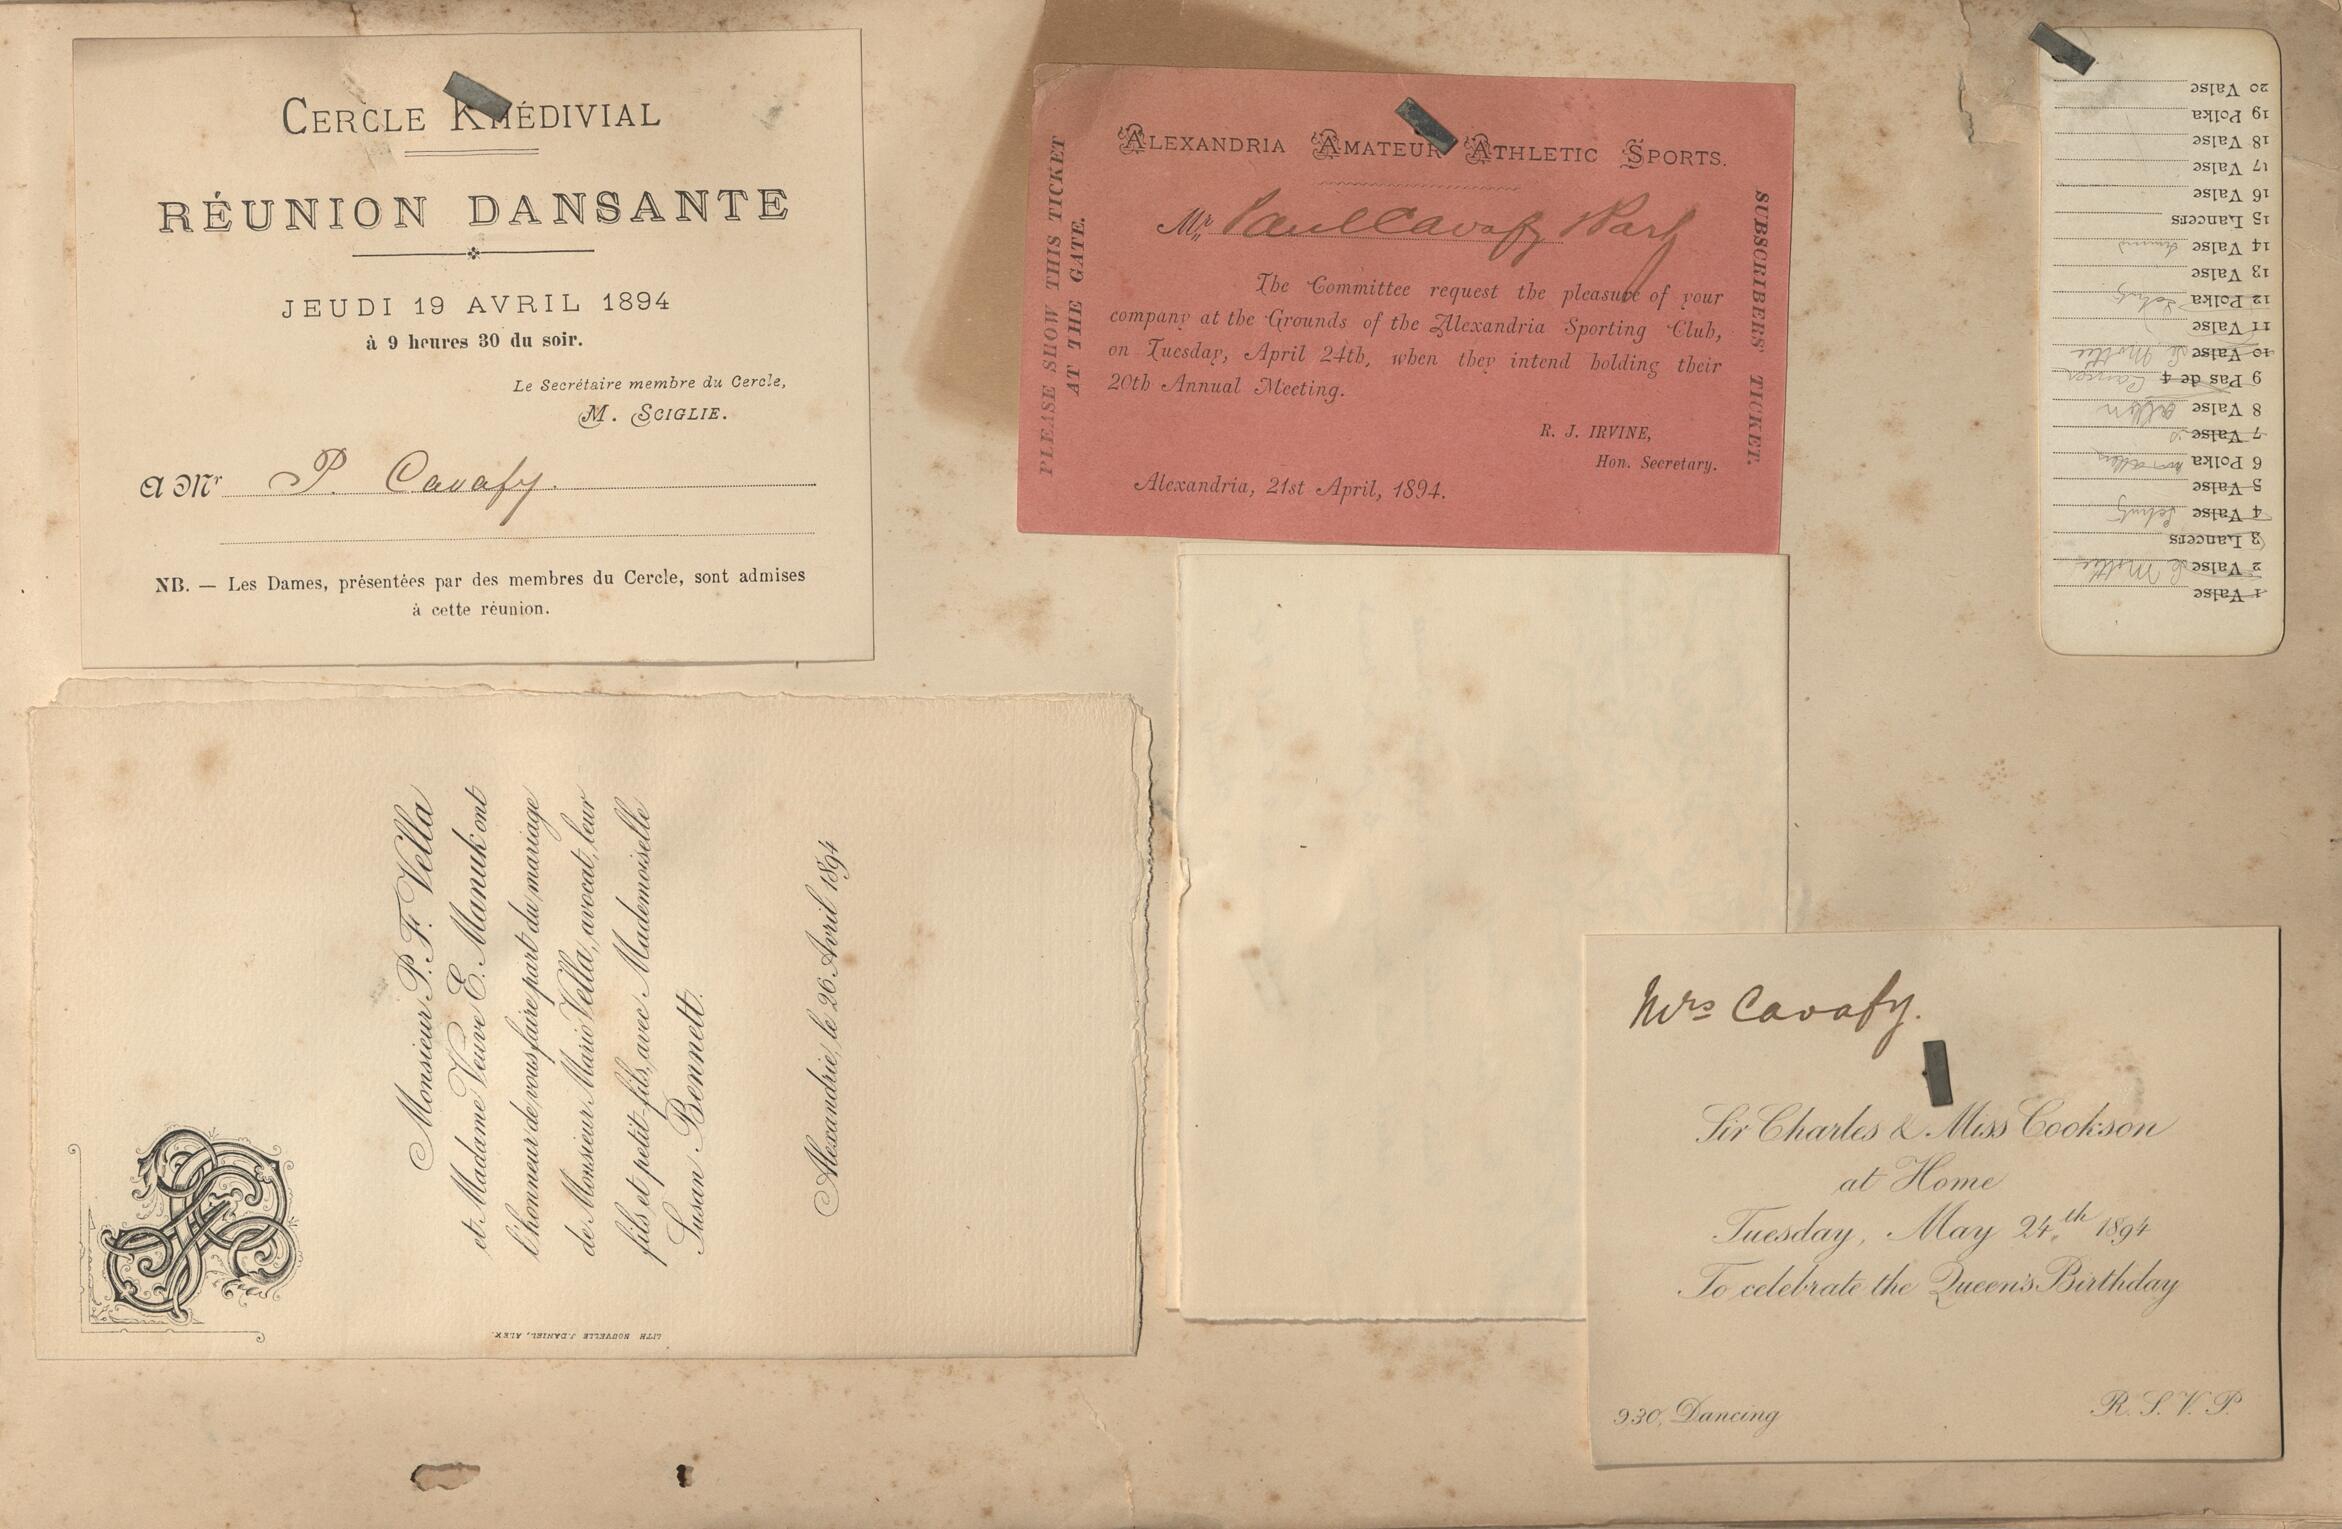 CERCLE KHÉDIVIAL
RÉUNION DANSANTE
JEUDI 19 AVRIL 1894
à 9 heures 30 du soir.
Le Secrétaire membre du Cercle,
M. SCIGLIE.
A Mr P. Cavafy.
NB. — Les Dames, présentées par des membres du Cercle, sont admises
à cette réunion.
PLEASE SHOW THIS TICKET
AT THE GATE.
ALEXANDRIA AMATEUR ATHLETIC SPORTS.
Mr Paul Cavafy
The Committee request the pleasure of your
company at the Grounds of the Alexandria Sporting Club,
on Tuesday, April 24th, when they intend holding their
20th Annual Meeting.
R. J. IRVINE,
Hon. Secretary.
Alexandria, 21st April, 1894.
SUBSCRIBERS' TICKET.
1 Valse
2 Valse
3 Lancers
4 Valse
5 Valse
6 Polka
7 Valse
8 Valse
9 Pas de 4
10 Valse
11 Valse
12 Polka
13 Valse
14 Valse
15 Lancers
16 Valse
17 Valse
18 Valse
19 Polka
20 Valse
Monsieur P. F. Vella
et Madame Veuve E. Manuk ont
l'honneur de vous faire part du mariage
de Monsieur Mario Vella, avocat, leur
fils et petit-fils, avec Mademoiselle
Susan Bennett.
Alexandrie, le 26 Avril 1894
LITH NOUVELLE J. DANIEL, ALEX.
Mrs Cavafy.
Sir Charles & Miss Cookson
at Home
Tuesday, May 24th 1894
To celebrate the Queen's Birthday
9,30, Dancing
R. S. V. P.